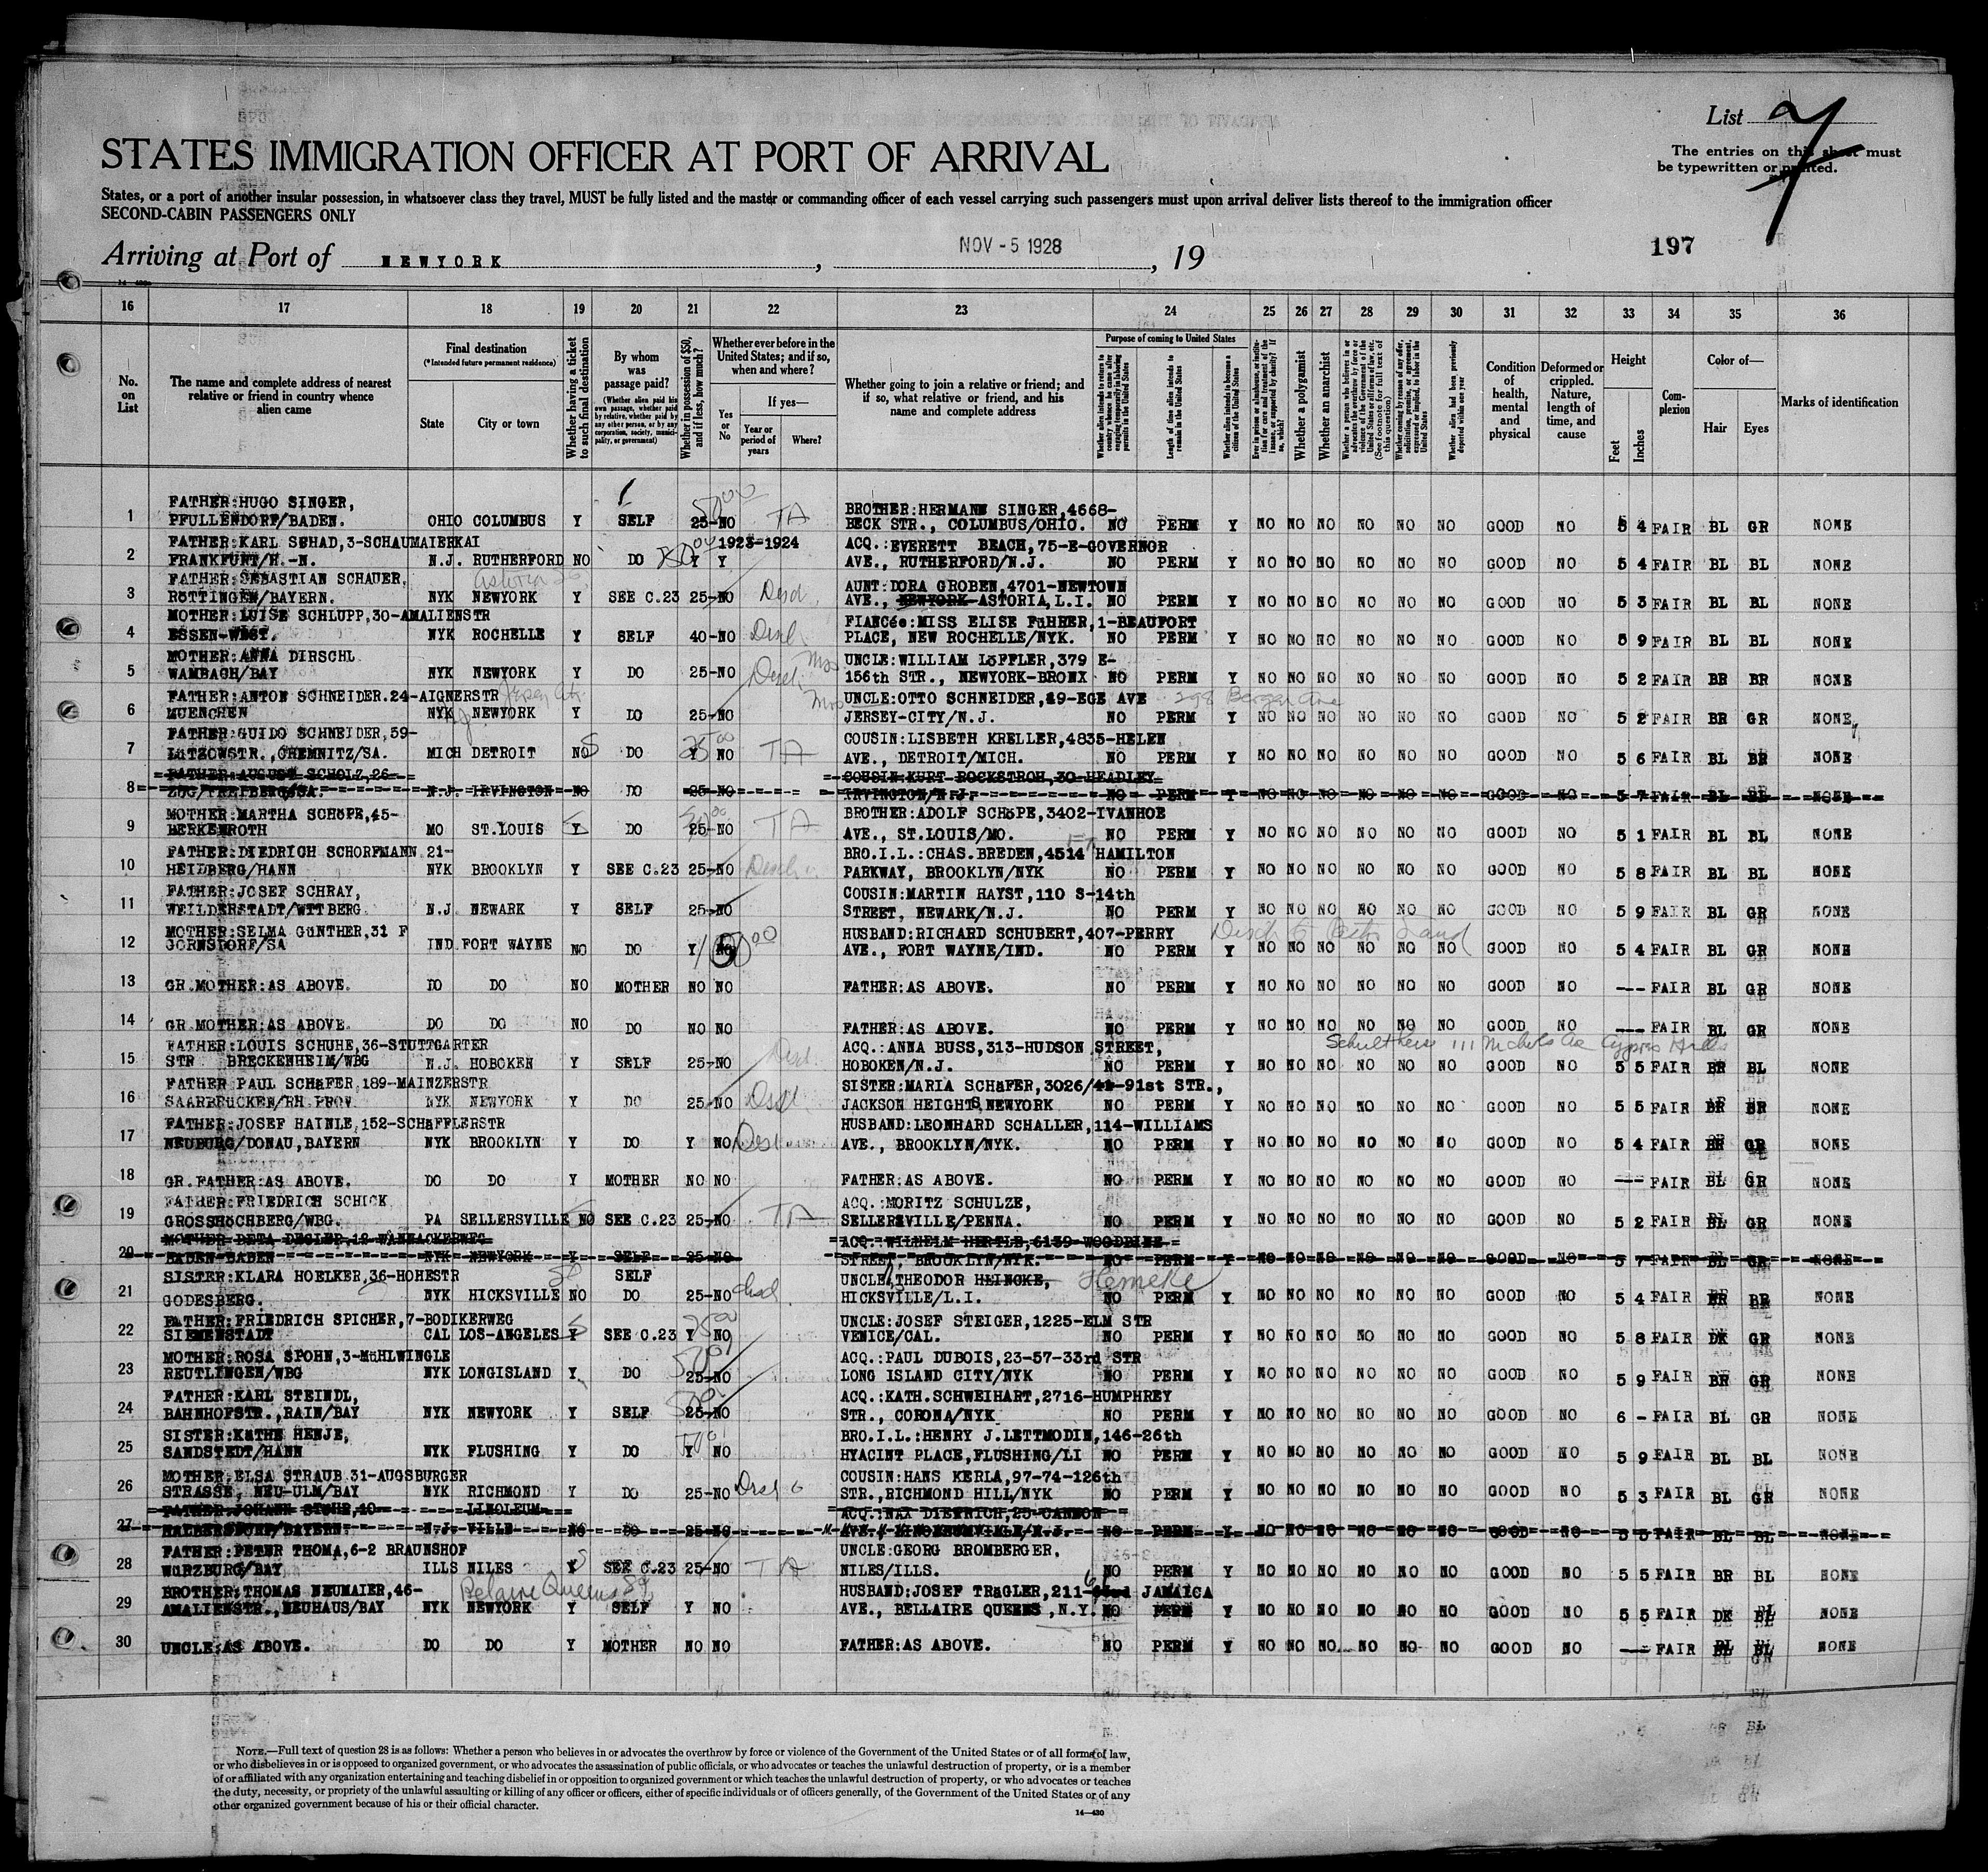 List
The entries on this sheet must
be typewritten or printed.
STATES IMMIGRATION OFFICER AT PORT OF ARRIVAL
States, or a port of another insular possession, in whatsoever class they travel, MUST be fully listed and the master or commanding officer of each vessel carrying such passengers must upon arrival deliver lists thereof to the immigration officer
SECOND-CABIN PASSENGERS ONLY
Arriving at Port of NEWYORK, NOV - 5 1928, 19 197
16 17 18 19 20 21 22 23 24 25 26 27 28 29 30 31 32 33 34 35 36
No. on List
The name and complete address of nearest relative or friend in country whence alien came
Final destination
(*Intended future permanent residence)
State City or town
Whether having a ticket to such final destination
By whom was passage paid?
(Whether alien paid his own passage, whether paid by relative, whether paid by any other person, or by any corporation, society, municipality, or government)
Whether in possession of $50, and if less, how much?
Whether ever before in the United States; and if so, when and where?
Yes or No
If yes—
Year or period of years
Where?
Whether going to join a relative or friend; and if so, what relative or friend, and his name and complete address
Purpose of coming to United States
Length of time alien intends to remain in the United States
Whether alien intends to become a citizen of the United States
Whether a polygamist
Whether an anarchist
Whether alien had been previously deported within one year
Condition of health, mental and physical
Deformed or crippled. Nature, length of time, and cause
Height
Feet Inches
Complexion
Color of—
Hair Eyes
Marks of identification
FATHER:HUGO SINGER, BROTHER:HERMANN SINGER,4668-
1 PFULLENDORF/BADEN. OHIO COLUMBUS Y SELF 25-NO TA BECK STR., COLUMBUS/OHIO. NO PERM Y NO NO NO NO NO NO GOOD NO 5 4 FAIR BL GR NONE
FATHER:KARL SCHAD,3-SCHAUMAIERKAI 1923-1924 ACQ.:EVERETT BEACH,75-E-GOVERNOR
2 FRANKFURT/M.-N. N.J. RUTHERFORD NO DO Y Y AVE., RUTHERFORD/N.J. NO PERM Y NO NO NO NO NO NO GOOD NO 5 4 FAIR BL BL NONE
FATHER:SEBASTIAN SCHAUER, AUNT:DORA GROBEN,4701-NEWTOWN
3 RöTTINGEN/BAYERN. NYK NEWYORK Y SEE C.23 25-NO AVE., NEWYORK-ASTORIA,L.I. NO PERM Y NO NO NO NO NO NO GOOD NO 5 3 FAIR BL BL NONE
MOTHER:LUISE SCHLUPP,30-AMALIENSTR FIANCée:MISS ELISE FüHRER,1-BEAUFORT
4 ESSEN-WEST. NYK ROCHELLE Y SELF 40-NO PLACE, NEW ROCHELLE/NYK. NO PERM Y NO NO NO NO NO NO GOOD NO 5 9 FAIR BL BL NONE
MOTHER:ANNA DIRSCHL UNCLE:WILLIAM LöFFLER,379 E-
5 WAMBACH/BAY NYK NEWYORK Y DO 25-NO 156th STR., NEWYORK-BRONX NO PERM Y NO NO NO NO NO NO GOOD NO 5 2 FAIR BR BR NONE
FATHER:ANTON SCHNEIDER.24-AIGNERSTR UNCLE:OTTO SCHNEIDER,29-EGE AVE 298 Bergen Ave
6 MUENCHEN NYK NEWYORK Y DO 25-NO JERSEY-CITY/N.J. NO PERM Y NO NO NO NO NO NO GOOD NO 5 2 FAIR BR GR NONE
FATHER:GUIDO SCHNEIDER,59- COUSIN:LISBETH KRELLER,4835-HELEN
7 LüTZOWSTR.,CHEMNITZ/SA. MICH DETROIT NO DO Y NO TA AVE., DETROIT/MICH. NO PERM Y NO NO NO NO NO NO GOOD NO 5 6 FAIR BL BR NONE
FATHER:AUGUST SCHOLZ,26- COUSIN:KURT ROCKSTROH,30-HEADLEY
8 ZUG/FREIBERG/SA. N.J. IRVINGTON NO DO 25-NO IRVINGTON/N.J. NO PERM Y NO NO NO NO NO NO GOOD NO 5 7 FAIR BL BL NONE
MOTHER:MARTHA SCHöPE,45- BROTHER:ADOLF SCHöPE,3402-IVANHOE
9 BERKENROTH MO ST.LOUIS Y DO 25-NO TA AVE., ST.LOUIS/MO. NO PERM Y NO NO NO NO NO NO GOOD NO 5 1 FAIR BL BL NONE
FATHER:DIEDRICH SCHORFMANN 21- BRO.I.L.:CHAS.BREDEN,4514 HAMILTON
10 HEIDBERG/HANN NYK BROOKLYN Y SEE C.23 25-NO PARKWAY, BROOKLYN/NYK NO PERM Y NO NO NO NO NO NO GOOD NO 5 8 FAIR BL BL NONE
FATHER:JOSEF SCHRAY, COUSIN:MARTIN HAYST,110 S-14th
11 WEILDERSTADT/WTTBERG N.J. NEWARK Y SELF 25-NO STREET, NEWARK/N.J. NO PERM Y NO NO NO NO NO NO GOOD NO 5 9 FAIR BL GR NONE
MOTHER:SELMA GüNTHER,31 F HUSBAND:RICHARD SCHUBERT,407-PERRY
12 GORNSDORF/SA IND. FORT WAYNE NO DO Y NO AVE., FORT WAYNE/IND. NO PERM Y NO NO NO NO NO NO GOOD NO 5 4 FAIR BL GR NONE
13 GR.MOTHER:AS ABOVE. DO DO NO MOTHER NO NO FATHER:AS ABOVE. NO PERM Y NO NO NO NO NO NO GOOD NO --- FAIR BL GR NONE
14 GR.MOTHER:AS ABOVE. DO DO NO DO NO NO FATHER:AS ABOVE. NO PERM Y NO NO NO NO NO NO GOOD NO --- FAIR BL GR NONE
FATHER:LOUIS SCHUHE,36-STUTTGARTER ACQ.:ANNA BUSS,313-HUDSON STREET,
15 STR BRECKENHEIM/WBG N.J. HOBOKEN Y SELF 25-NO HOBOKEN/N.J. NO PERM Y NO NO NO NO NO NO GOOD NO 5 5 FAIR BR BL NONE
FATHER PAUL SCHäFER.189-MAINZERSTR SISTER:MARIA SCHäFER,3026/41-91st STR.,
16 SAARBRüCKEN/RH.PROV NYK NEWYORK Y DO 25-NO JACKSON HEIGHTS,NEWYORK NO PERM Y NO NO NO NO NO NO GOOD NO 5 5 FAIR BR BR NONE
FATHER:JOSEF HAINLE,152-SCHäFFLERSTR HUSBAND:LEONHARD SCHALLER,114-WILLIAMS
17 NEUBURG/DONAU,BAYERN NYK BROOKLYN Y DO Y NO AVE., BROOKLYN/NYK. NO PERM Y NO NO NO NO NO NO GOOD NO 5 4 FAIR BR GR NONE
18 GR.FATHER:AS ABOVE. DO DO Y MOTHER NO NO FATHER:AS ABOVE. NO PERM Y NO NO NO NO NO NO GOOD NO --- FAIR BL GR NONE
FATHER:FRIEDRICH SCHICK ACQ.:MORITZ SCHULZE,
19 GROSSHöCHBERG/WBG. PA SELLERSVILLE NO SEE C.23 25-NO TA SELLERSVILLE/PENNA. NO PERM Y NO NO NO NO NO NO GOOD NO 5 2 FAIR BL GR NONE
MOTHER BETA DEGLER,12-WANNACKERWEG ACQ.:WILHELM HERTLE,6139-WOODBINE
20 BADEN-BADEN NYK NEWYORK Y SELF 25-NO STREET, BROOKLYN/NYK. NO PERM Y NO NO NO NO NO NO GOOD NO 5 7 FAIR BL GR NONE
SISTER:KLARA HOELKER,36-HOHESTR SELF UNCLE,THEODOR HEINCKE, Hemeke
21 GODESBERG. NYK HICKSVILLE NO DO 25-NO HICKSVILLE/L.I. NO PERM Y NO NO NO NO NO NO GOOD NO 5 4 FAIR BR BR NONE
FATHER:FRIEDRICH SPICHER,7-BODIKERWEG UNCLE:JOSEF STEIGER,1225-ELM STR
22 SIEMENSTADT CAL LOS-ANGELES Y SEE C.23 Y NO VENICE/CAL. NO PERM Y NO NO NO NO NO NO GOOD NO 5 8 FAIR DK GR NONE
MOTHER:ROSA SPOHN,3-MüHLWINGLE ACQ.:PAUL DUBOIS,23-57-33rd STR
23 REUTLINGEN/WBG NYK LONGISLAND Y DO 25-NO LONG ISLAND CITY/NYK NO PERM Y NO NO NO NO NO NO GOOD NO 5 9 FAIR BR GR NONE
FATHER:KARL STEINDL, ACQ.:KATH.SCHWEIHART,2716-HUMPHREY
24 BAHNHOFSTR.,RAIN/BAY NYK NEWYORK Y SELF 25-NO STR., CORONA/NYK NO PERM Y NO NO NO NO NO NO GOOD NO 6 - FAIR BL GR NONE
SISTER:KäTHE HENJE, BRO.I.L.:HENRY J.LETTMODIN,146-26th
25 SANDSTEDT/HANN NYK FLUSHING Y DO Y NO HYACINT PLACE,FLUSHING/LI NO PERM Y NO NO NO NO NO NO GOOD NO 5 9 FAIR BL BL NONE
MOTHER,ELSA STRAUB 31-AUGSBURGER COUSIN:HANS KERLA,97-74-126th
26 STRASSE, NEU-ULM/BAY NYK RICHMOND Y DO 25-NO STR.,RICHMOND HILL/NYK NO PERM Y NO NO NO NO NO NO GOOD NO 5 3 FAIR BL GR NONE
FATHER:JOHANN STOHR,10- LINOLEUM- ACQ.:MAX DIETRICH,25-CANNON
27 N.J. VILLE NO DO 25-NO NO PERM Y NO NO NO NO NO NO GOOD NO 5 5 FAIR BL BL NONE
FATHER:PETER THOMA,6-2 BRAUNSHOF UNCLE:GEORG BROMBERGER,
28 WüRZBURG/BAY ILLS NILES SEE C.23 25-NO TA NILES/ILLS. NO PERM Y NO NO NO NO NO NO GOOD NO 5 5 FAIR BR BL NONE
BROTHER:THOMAS NEUMAIER,46- HUSBAND:JOSEF TRäGLER,211- JAMAICA
29 AMALIENSTR.,NEUHAUS/BAY NYK NEWYORK Y SELF Y NO AVE., BELLAIRE QUEENS,N.Y. NO PERM Y NO NO NO NO NO NO GOOD NO 5 5 FAIR DK BL NONE
30 UNCLE:AS ABOVE. DO DO Y MOTHER NO NO FATHER:AS ABOVE. NO PERM Y NO NO NO NO NO NO GOOD NO --- FAIR BL BL NONE
NOTE.—Full text of question 28 is as follows: Whether a person who believes in or advocates the overthrow by force or violence of the Government of the United States or of all forms of law,
or who disbelieves in or is opposed to organized government, or who advocates the assassination of public officials, or who advocates or teaches the unlawful destruction of property, or is a member
of or affiliated with any organization entertaining and teaching disbelief in or opposition to organized government or which teaches the unlawful destruction of property, or who advocates or teaches
the duty, necessity, or propriety of the unlawful assaulting or killing of any officer or officers, either of specific individuals or of officers generally, of the Government of the United States or of any
other organized government because of his or their official character.
14—430